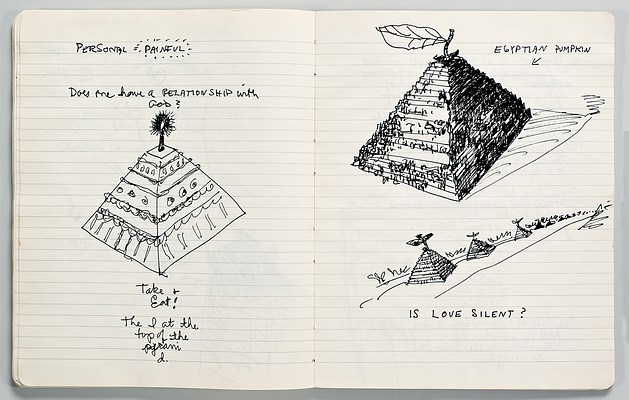 PERSONAL = PAINFUL
Does one have a RELATIONSHIP with
God?
Take +
Eat!
The I at the
top of the
pyrami
d.
EGYPTIAN PUMPKIN
IS LOVE SILENT?